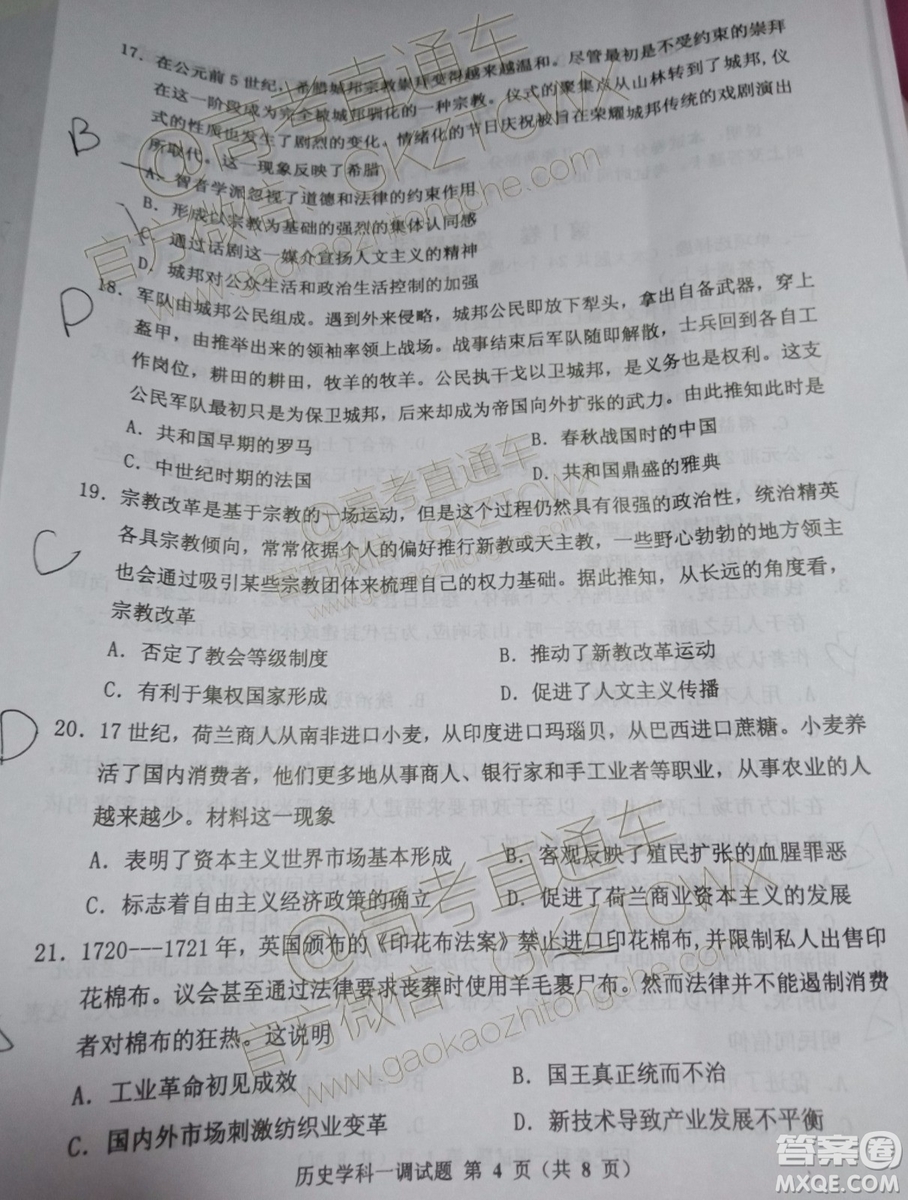 17. 在公元前5世纪，希腊城邦宗教崇拜变得越来越温和。尽管最初是不受约束的崇拜
在这一阶段成为完全被城邦驯化的一种宗教。仪式的聚集点从山林转到了城邦，仪
式的性质也发生了剧烈的变化，情绪化的节日庆祝被旨在荣耀城邦传统的戏剧演出
所取代。这一现象反映了希腊
B
A. 智者学派忽视了道德和法律的约束作用
B. 形成以宗教为基础的强烈的集体认同感
C. 通过话剧这一媒介宣扬人文主义的精神
D. 城邦对公众生活和政治生活控制的加强
D
18. 军队由城邦公民组成。遇到外来侵略，城邦公民即放下犁头，拿出自备武器，穿上
盔甲，由推举出来的领袖率领上战场。战事结束后军队随即解散，士兵回到各自工
作岗位，耕田的耕田，牧羊的牧羊。公民执干戈以卫城邦，是义务也是权利。这支
公民军队最初只是为保卫城邦，后来却成为帝国向外扩张的武力。由此推知此时是
A. 共和国早期的罗马 B. 春秋战国时的中国
C. 中世纪时期的法国 D. 共和国鼎盛的雅典
19. 宗教改革是基于宗教的一场运动，但是这个过程仍然具有很强的政治性，统治精英
C
各具宗教倾向，常常依据个人的偏好推行新教或天主教，一些野心勃勃的地方领主
也会通过吸引某些宗教团体来梳理自己的权力基础。据此推知，从长远的角度看，
宗教改革
A. 否定了教会等级制度 B. 推动了新教改革运动
C. 有利于集权国家形成 D. 促进了人文主义传播
D
20. 17世纪，荷兰商人从南非进口小麦，从印度进口玛瑙贝，从巴西进口蔗糖。小麦养
活了国内消费者，他们更多地从事商人、银行家和手工业者等职业，从事农业的人
越来越少。材料这一现象
A. 表明了资本主义世界市场基本形成 B. 客观反映了殖民扩张的血腥罪恶
C. 标志着自由主义经济政策的确立 D. 促进了荷兰商业资本主义的发展
21. 1720---1721年，英国颁布的《印花布法案》禁止进口印花棉布，并限制私人出售印
花棉布。议会甚至通过法律要求丧葬时使用羊毛裹尸布。然而法律并不能遏制消费
者对棉布的狂热。这说明
A. 工业革命初见成效 B. 国王真正统而不治
C. 国内外市场刺激纺织业变革 D. 新技术导致产业发展不平衡
历史学科一调试题 第 4 页（共 8 页）
@高考直通车
官方微信：GKZTCWX
www.gaokaozhitongche.com
@高考直通车
官方微信：GKZTCWX
www.gaokaozhitongche.com
@高考直通车
官方微信：GKZTCWX
www.gaokaozhitongche.com
答案圈
MXQE.COM